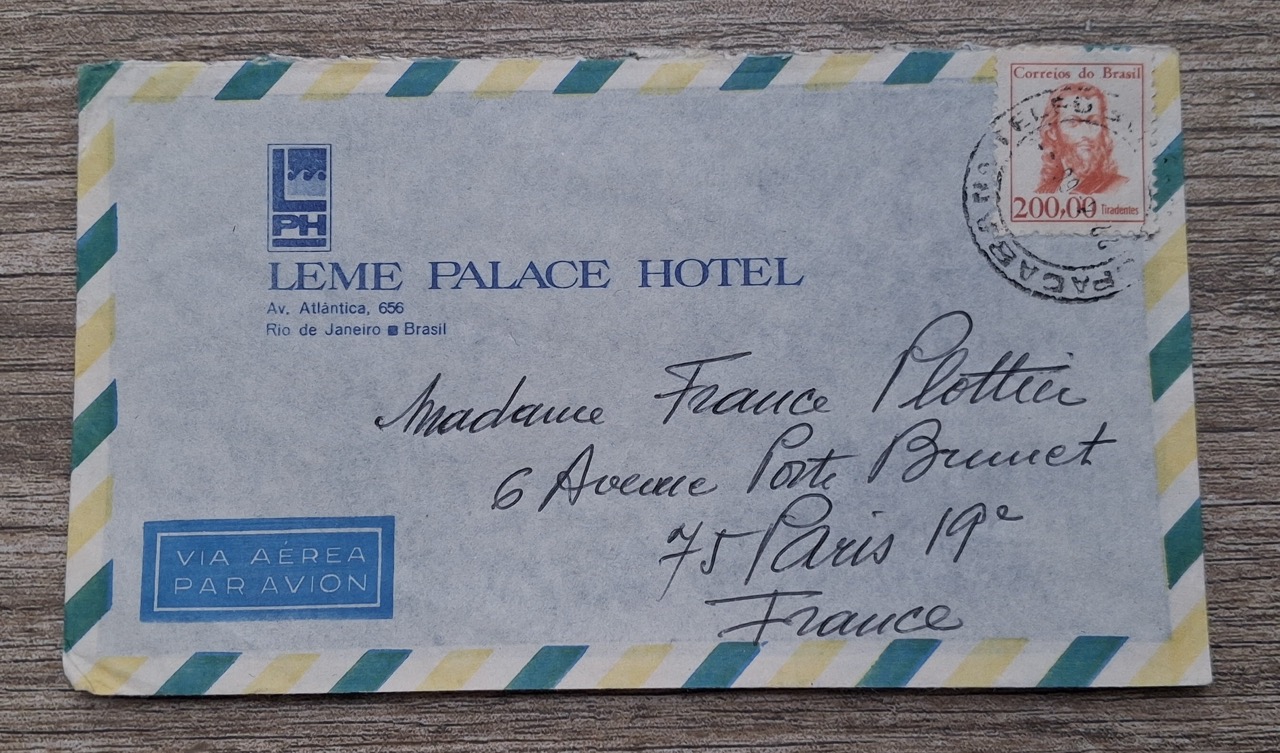 Correios do Brasil
200,00 Tiradentes
PH
LEME PALACE HOTEL
Av. Atlântica, 656
Rio de Janeiro Brasil
Madame France Plottier
6 Avenue Porte Brunet
75 Paris 19e
France
VIA AÉREA
PAR AVION